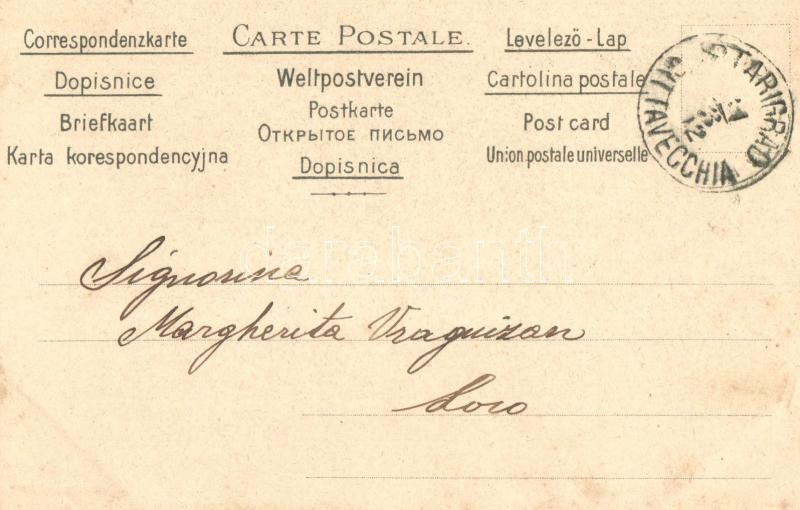 Correspondenzkarte
Dopisnice
Briefkaart
Karta korespondencyjna
CARTE POSTALE.
Weltpostverein
Postkarte
ОТКРЫТОЕ ПИСЬМО
Dopisnica
Levelező-Lap
Cartolina postale
Post card
Union postale universelle
STARIGRAD
CITTAVECCHIA
darabanth
Signorina
Margherita Vraguizan
Loco